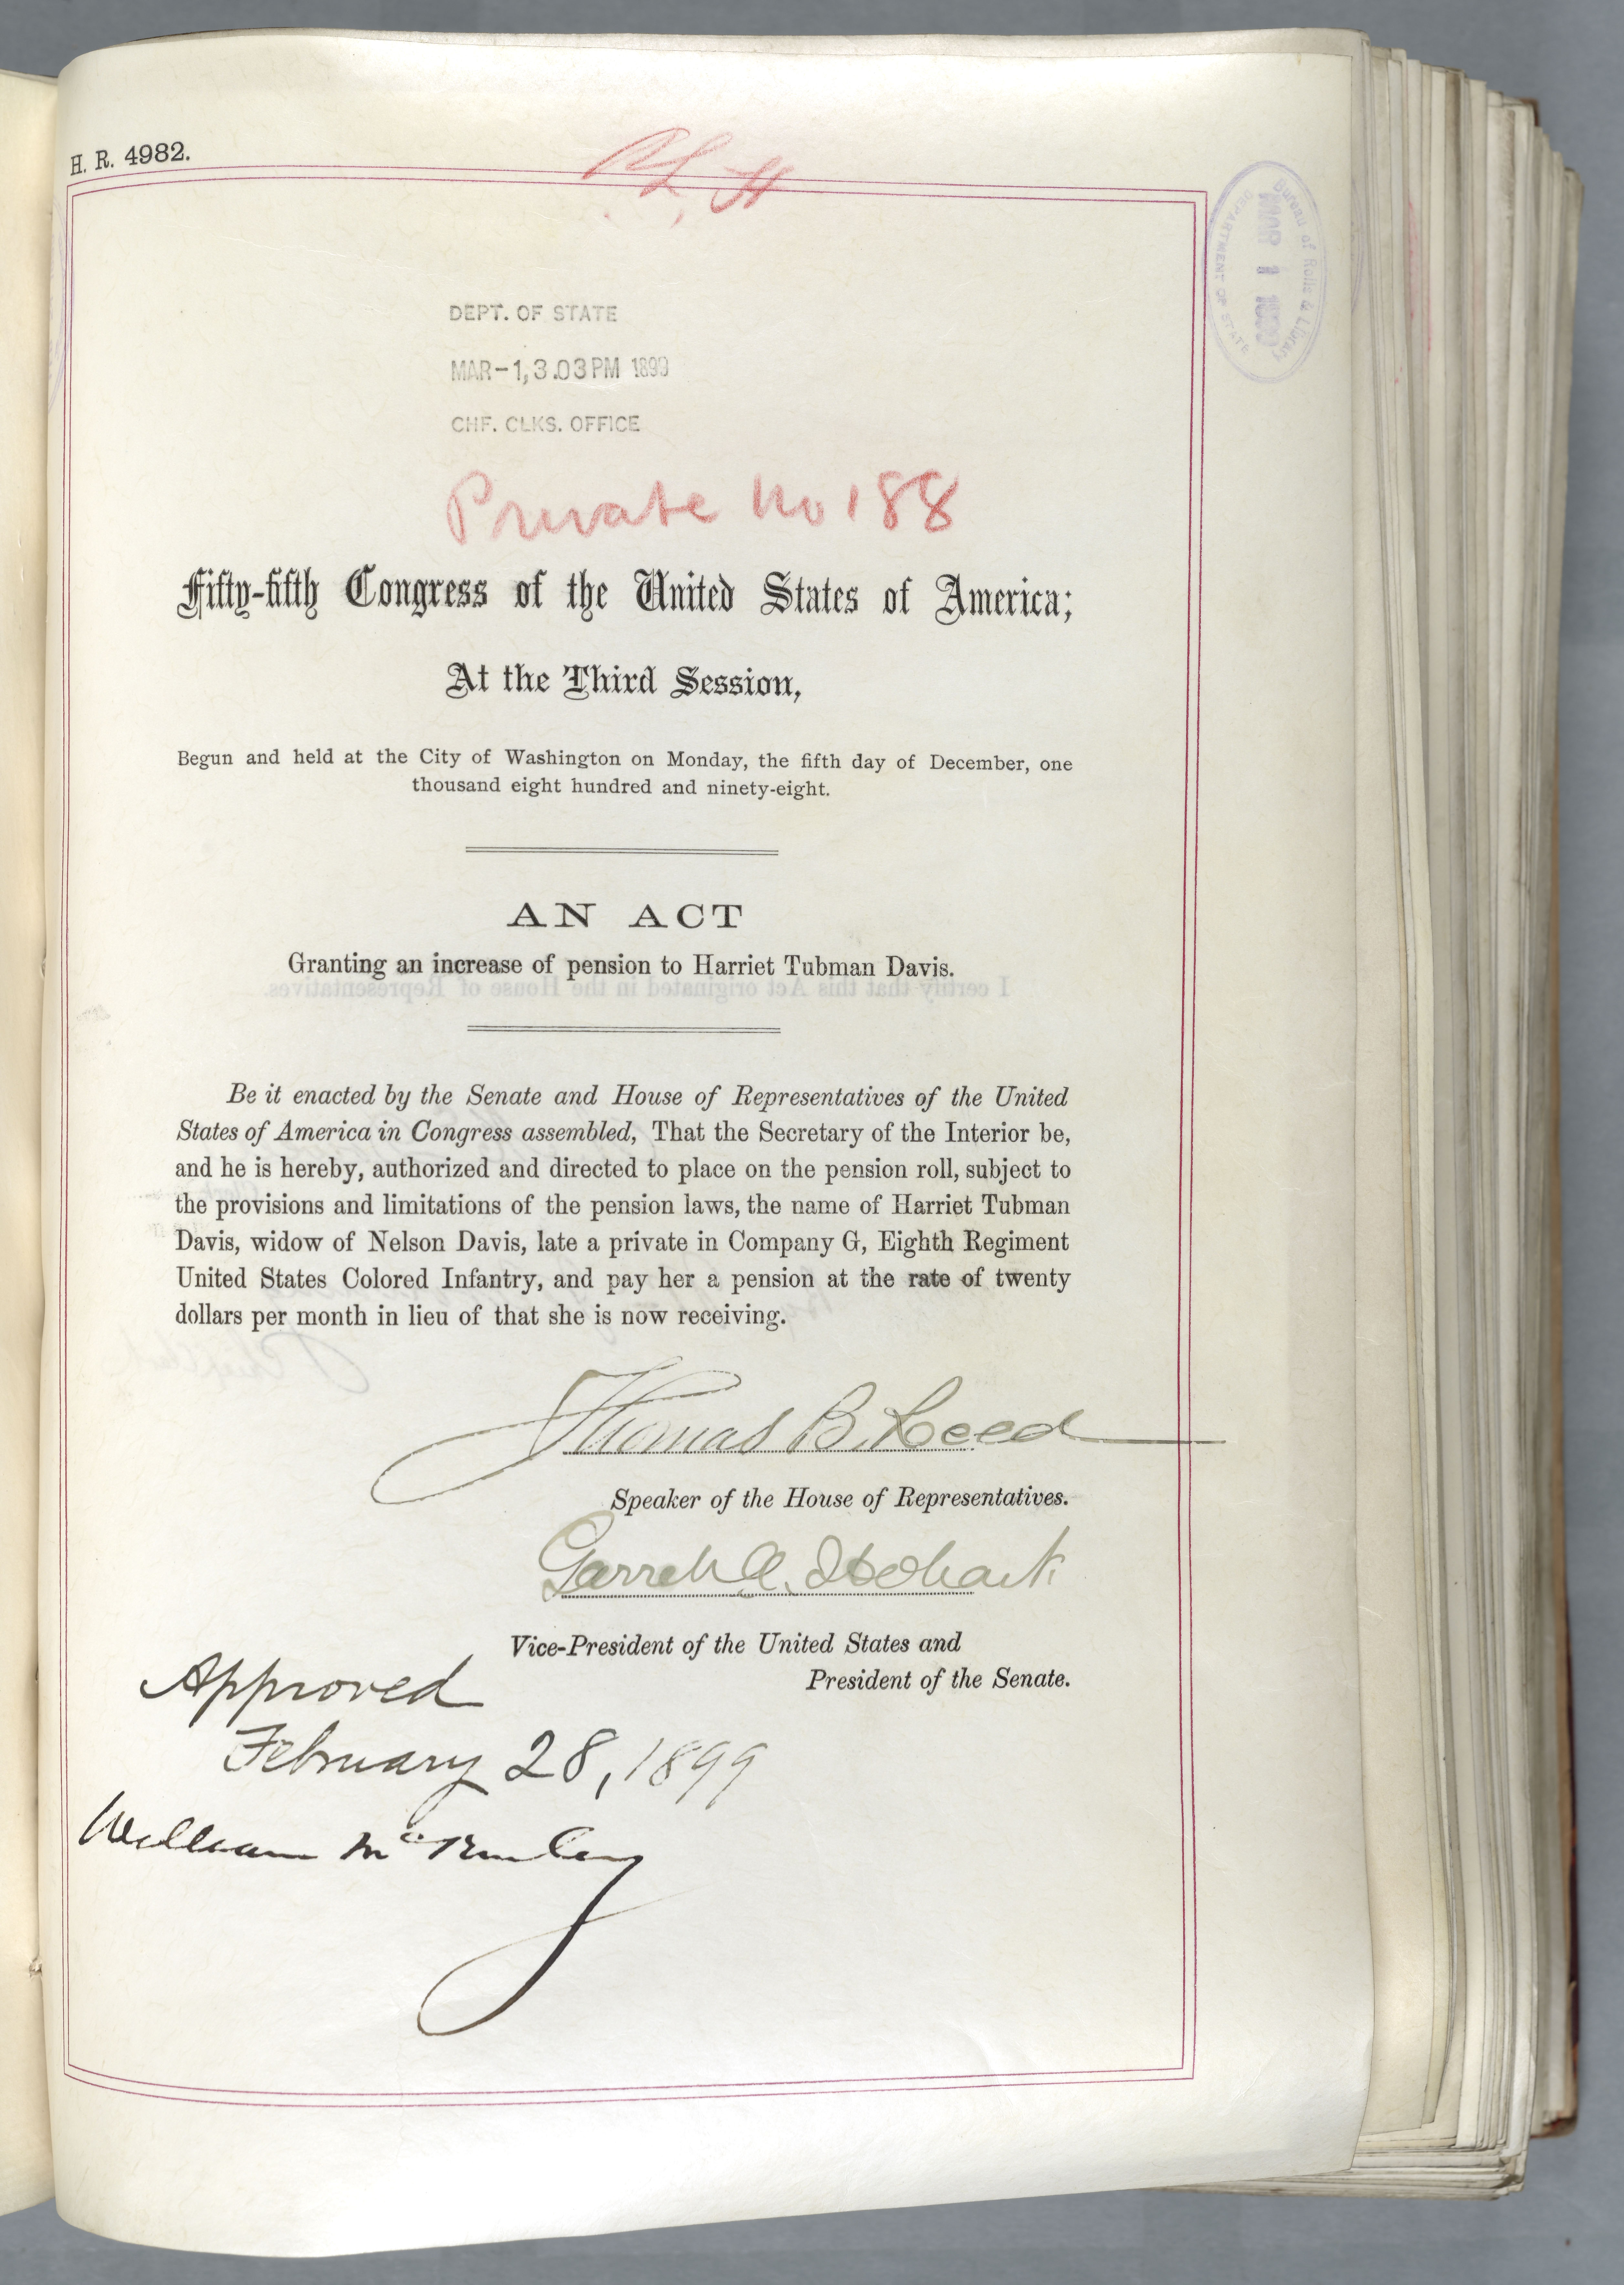 H. R. 4982.
Bureau of Rolls & Library
MAR 1 1899
DEPARTMENT OF STATE
DEPT. OF STATE
MAR-1, 3.03 PM 1899
CHF. CLKS. OFFICE
Private No 188
Fifty-fifth Congress of the United States of America;
At the Third Session,
Begun and held at the City of Washington on Monday, the fifth day of December, one
thousand eight hundred and ninety-eight.
AN ACT
Granting an increase of pension to Harriet Tubman Davis.
I certify that this Act originated in the House of Representatives.
Be it enacted by the Senate and House of Representatives of the United
States of America in Congress assembled, That the Secretary of the Interior be,
and he is hereby, authorized and directed to place on the pension roll, subject to
the provisions and limitations of the pension laws, the name of Harriet Tubman
Davis, widow of Nelson Davis, late a private in Company G, Eighth Regiment
United States Colored Infantry, and pay her a pension at the rate of twenty
dollars per month in lieu of that she is now receiving.
Thomas B. Reed
Speaker of the House of Representatives.
Garret A. Hobart
Vice-President of the United States and
President of the Senate.
Approved
February 28, 1899
William McKinley